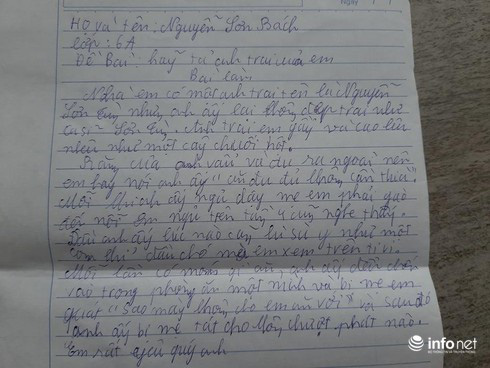 Họ và tên: Nguyễn Sơn Bách
Lớp: 6A
Đề Bài: hãy tả anh trai của em
Bài làm
Nhà em có một anh trai tên là Nguyễn
Sơn Tùng nhưng anh ấy lại không đẹp trai như
ca sĩ Sơn Tùng. Anh trai em gầy và cao lêu
nghêu như một cây chuối hột.
Răng của anh vẩu và đu ra ngoài nên
em hay nói anh ấy "ăn đu đủ không cần thìa".
Mỗi khi anh ấy ngủ dậy mẹ em phải gào
ầm ngủ trên tầng 4 cũng nghe thấy.
anh ấy lúc nào cũng lù xù y như một
con thú đầu chó mà em xem trên ti vi.
Mỗi lần có món gì ăn, anh ấy đều chốn
vào trong phòng ăn một mình và bị mẹ em
quát "sao mày không cho em ăn với" và sau đó
anh ấy bị mẹ tát cho không trượt phát nào.
Em rất quý anh
infonet